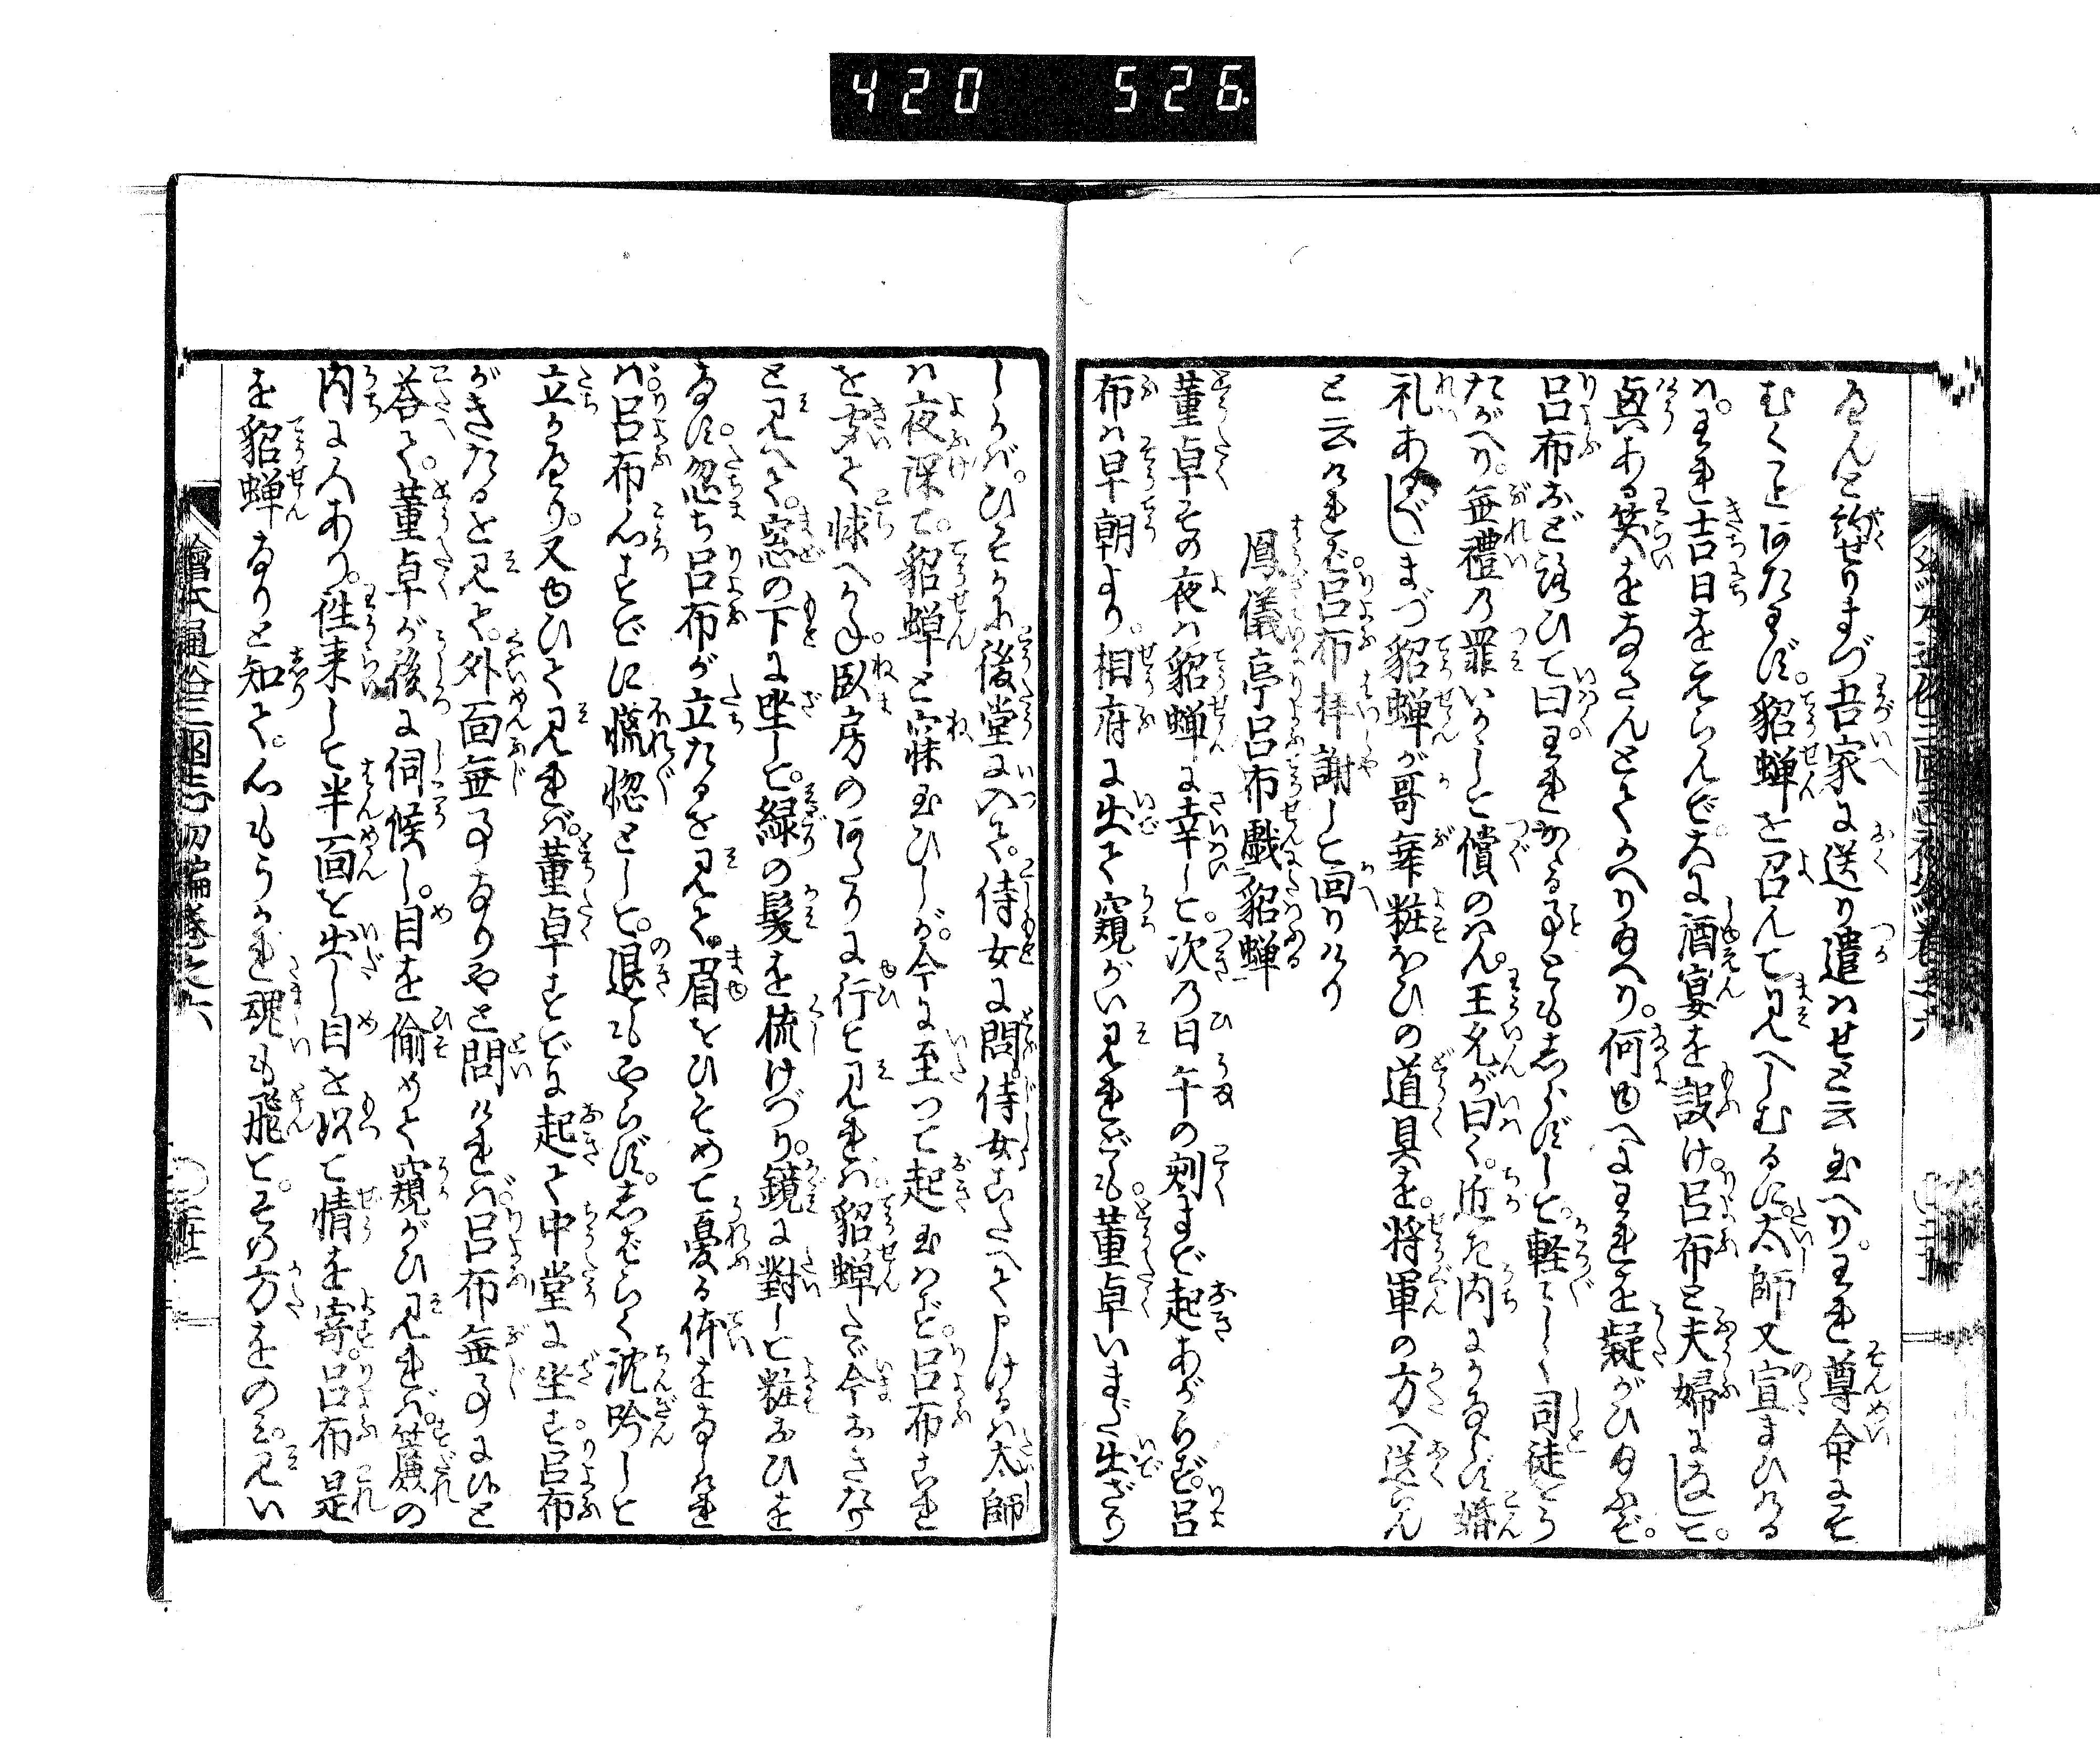 420 526
ゐんと約せりまづ吾家に送り遣はせと云玉へりわれ尊命にそ
むくことあたはず貂蝉を召んで見へしむるに太師又宣まひける
はわれ吉日をえらんで大に酒宴を設け呂布と夫婦になして
興ある笑をなさんとてかへり給へり何ゆへにわれを疑がひ給ふぞ
呂布などろひて曰われかゝる事ともしらずして軽〳〵しく司徒をう
たがへり無禮の罪いかにして償のはん王允が曰く近き内にかならず婚
礼あるべしまづ貂蝉が哥舞粧ほひの道具を将軍の方へ送らん
と云ければ呂布拝謝して回りけり
鳳儀亭呂布戯貂蝉
董卓その夜は貂蝉に幸して次の日午の刻まで起あがらず呂
布は早朝より相府に出て窺がい見れども董卓いまだ出ざり
しかばひそかに後堂に入て侍女に問侍女こたへて申けるは太師
は夜深て貂蝉と寐玉ひしが今に至つて起玉はず呂布これ
を聞て悚へかね臥房のほとりに行て見れば貂蝉たゞ今おきたり
と見へて窓の下に坐して緑の髪を梳けづり鏡に對して粧おひを
なす忽ち呂布が立たるを見て眉をひそめて憂る体をなしけれ
ば呂布心すでに慌惚として退もやらずしばらく沈吟して
立かへり又ゆひて見れば董卓すでに起て中堂に坐す呂布
がきたるを見て外面無事なりやと問ければ呂布無事に候と
荅て董卓が後に伺候し目を偷めて窺がひ見れば簾の
内に人あり徃来して半面を出し目を以て情を寄呂布是
を貂蝉なりと知て心もうかれ魂も飛てその方をのみ見い
繪本通俗三國志初編巻之六